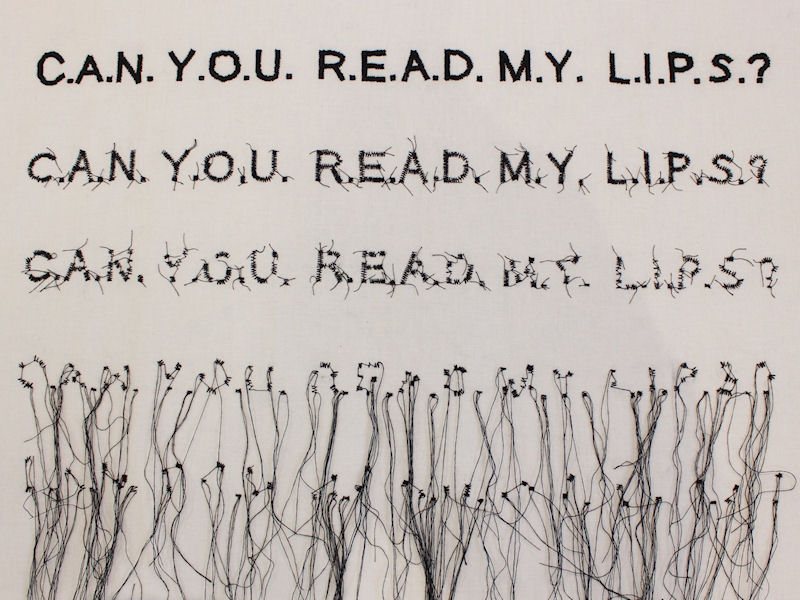 C.A.N. Y.O.U. R.E.A.D. M.Y. L.I.P.S.?
C.A.N. Y.O.U. R.E.A.D. M.Y. L.I.P.S.?
C.A.N. Y.O.U. R.E.A.D. M.Y. L.I.P.S.?